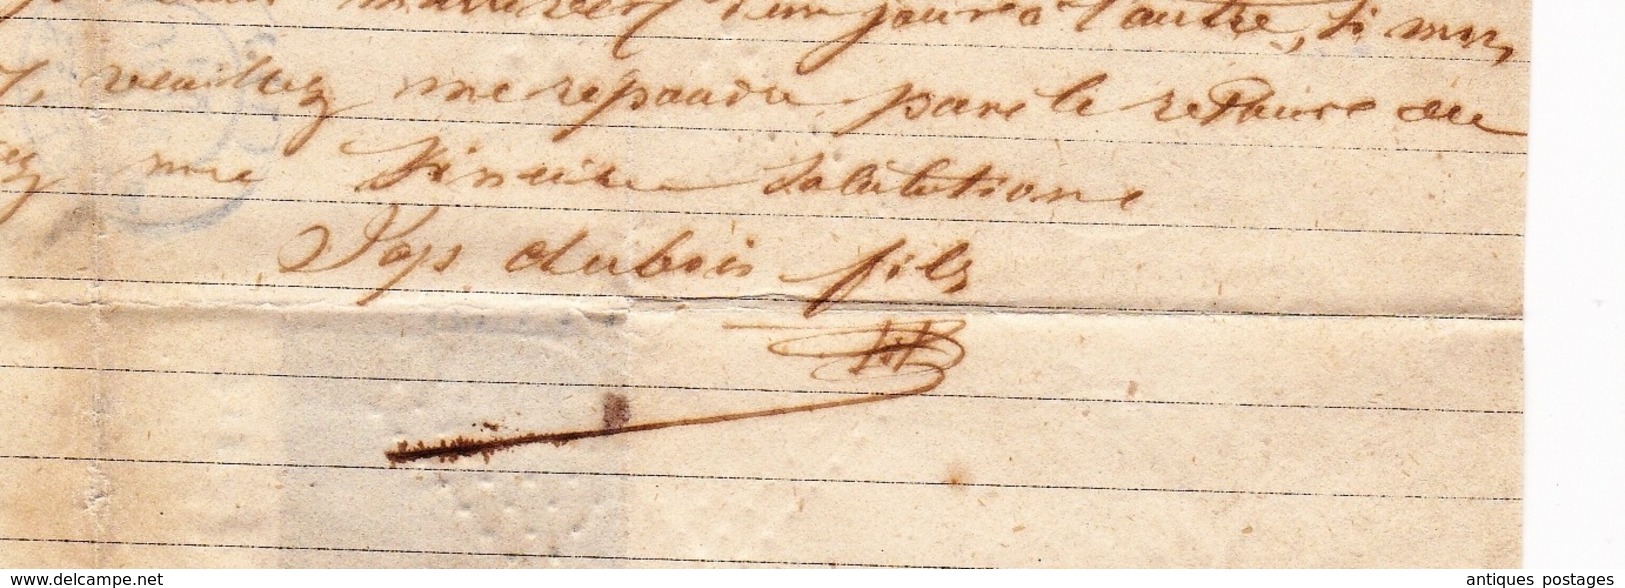 d'un jour à l'autre, si mon
veuillez me repondre par le retour du
ez me sincère salutations
Jops dubois fils
www.delcampe.net
antiques postages